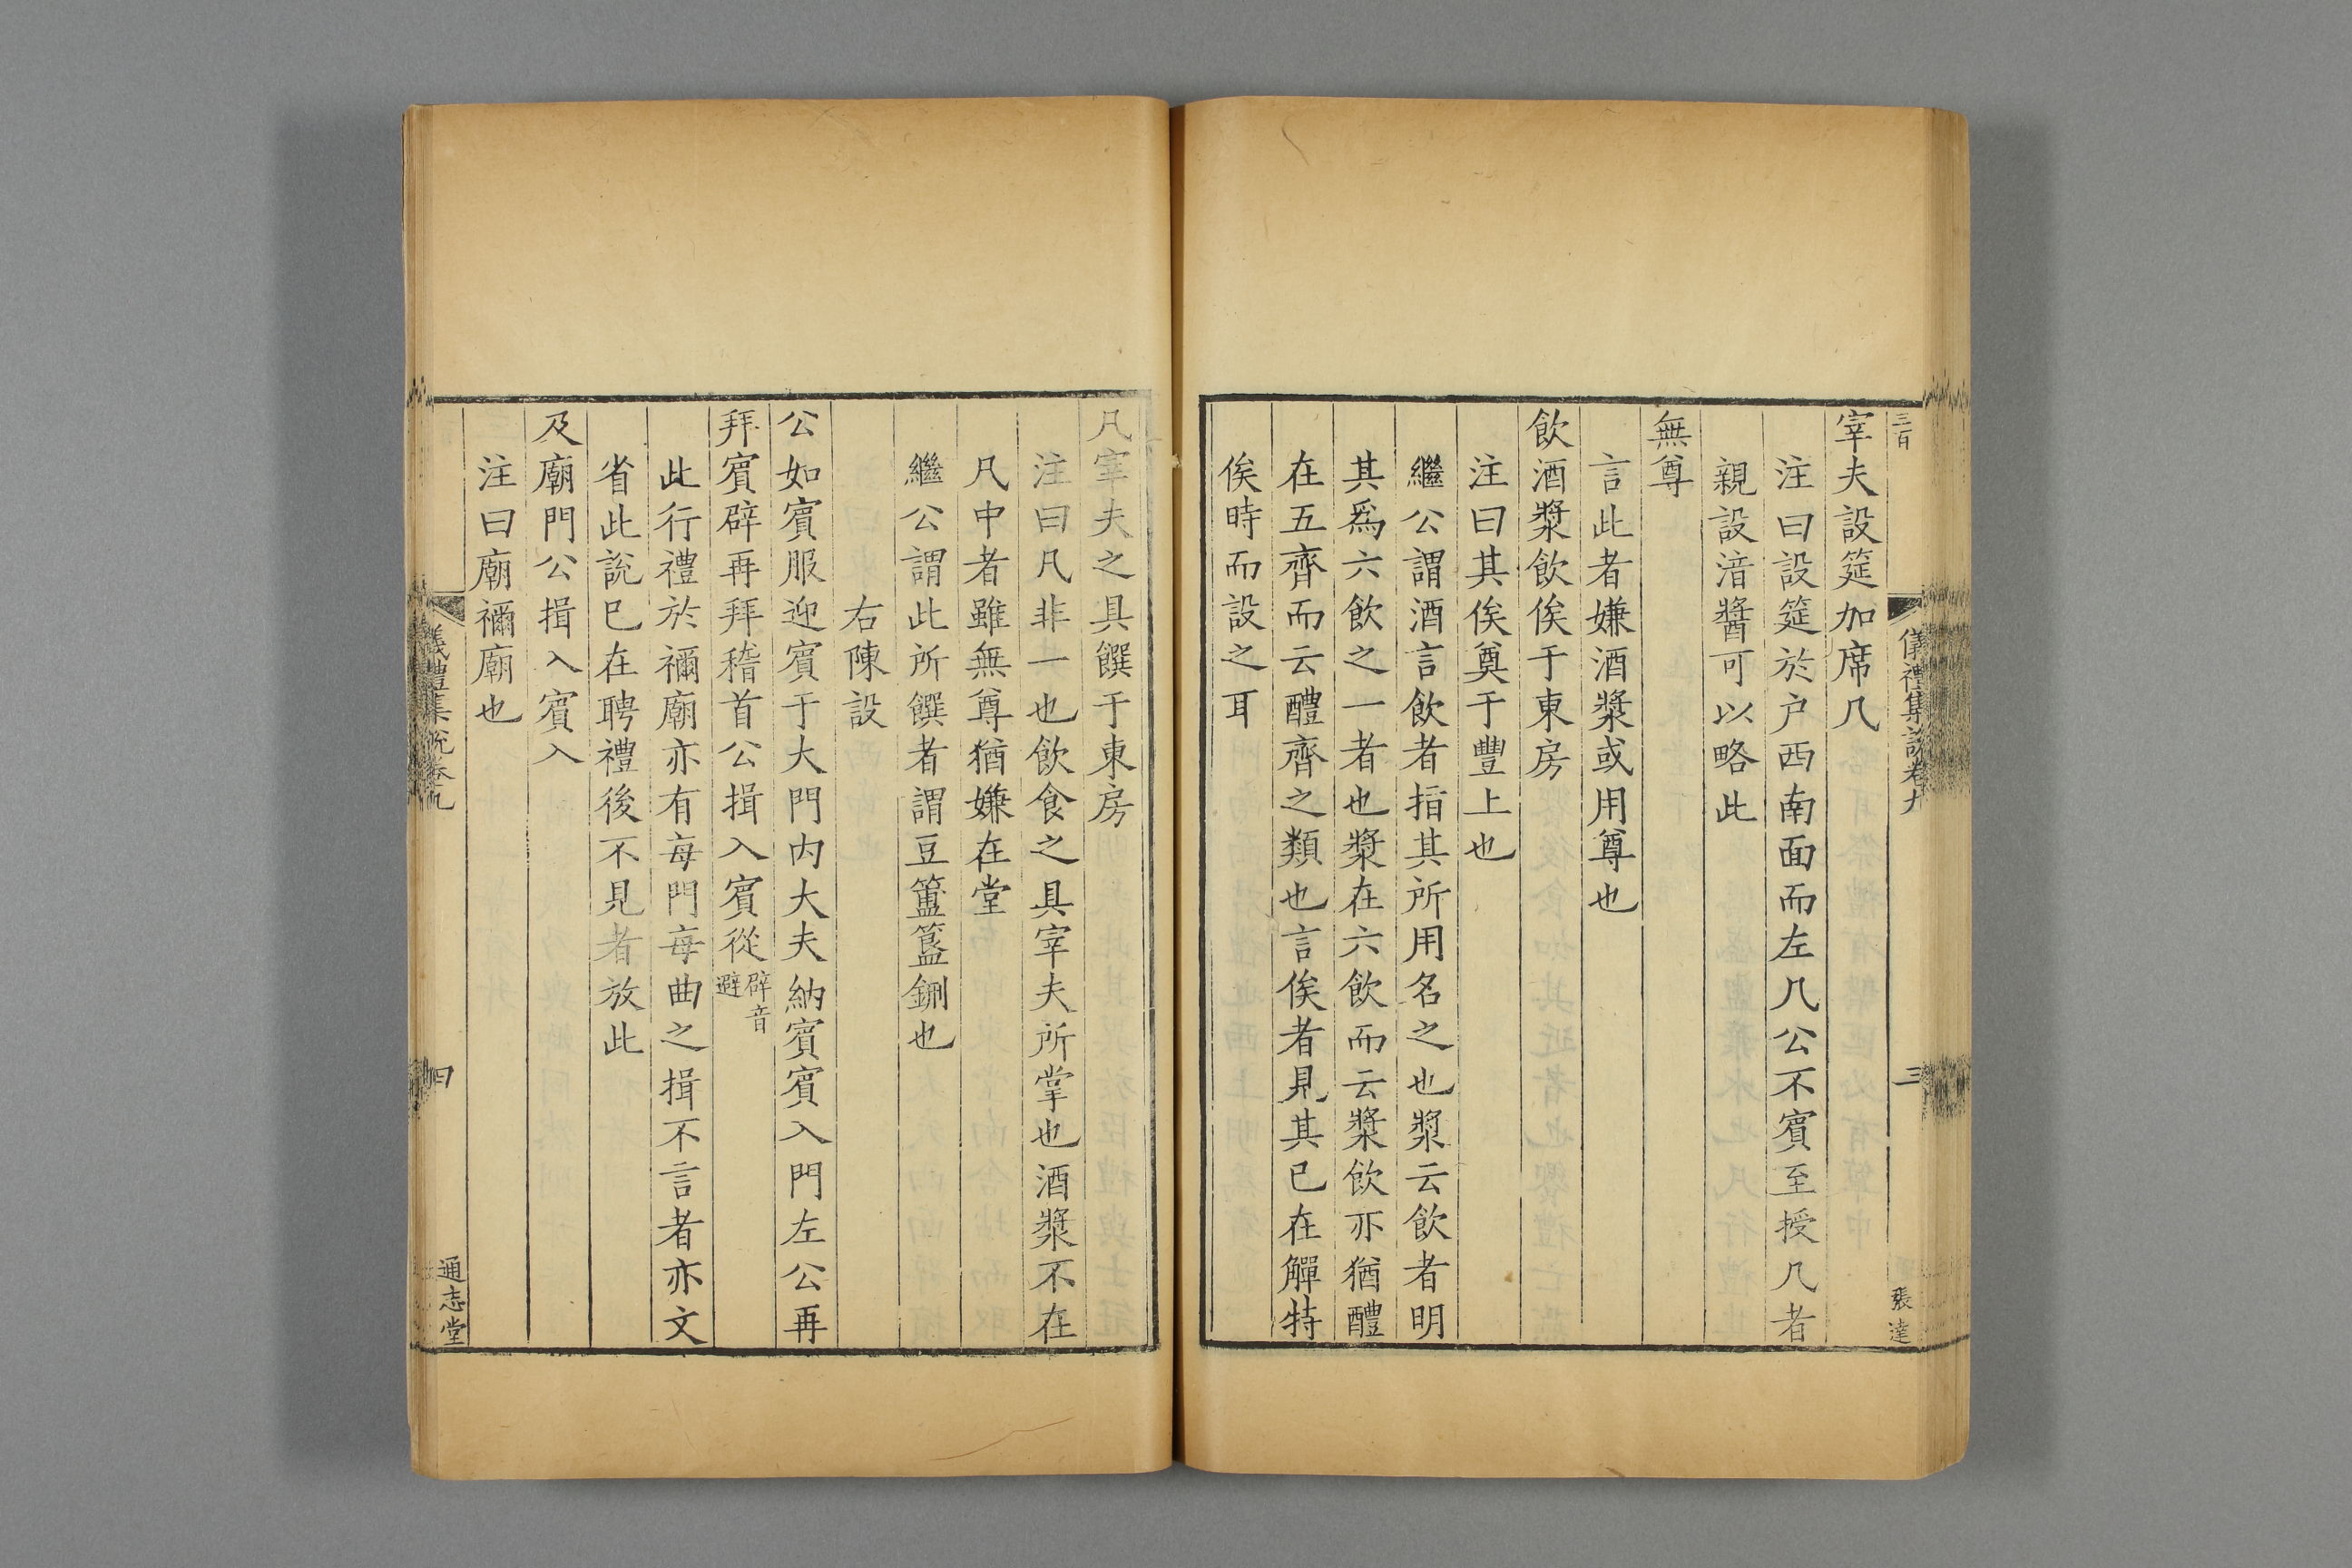 三百
儀禮集說卷九
三
張達
宰夫設筵加席几
注曰設筵於户西南面而左几公不賓至授几者
親設湆醬可以略此
無尊
言此者嫌酒漿或用尊也
飲酒漿飲俟于東房
注曰其俟奠于豐上也
繼公謂酒言飲者指其所用名之也漿云飲者明
其爲六飲之一者也漿在六飲而云漿飲亦猶醴
在五齊而云醴齊之類也言俟者見其已在觶特
俟時而設之耳
凡宰夫之具饌于東房
注曰凡非一也飲食之具宰夫所掌也酒漿不在
凡中者雖無尊猶嫌在堂
繼公謂此所饌者謂豆簠簋鉶也
右陳設
公如賓服迎賓于大門内大夫納賓賓入門左公再
拜賓辟再拜稽首公揖入賓從辟音避
此行禮於禰廟亦有每門每曲之揖不言者亦文
省此說已在聘禮後不見者放此
及廟門公揖入賓入
注曰廟禰廟也
儀禮集說卷九
四
通志堂